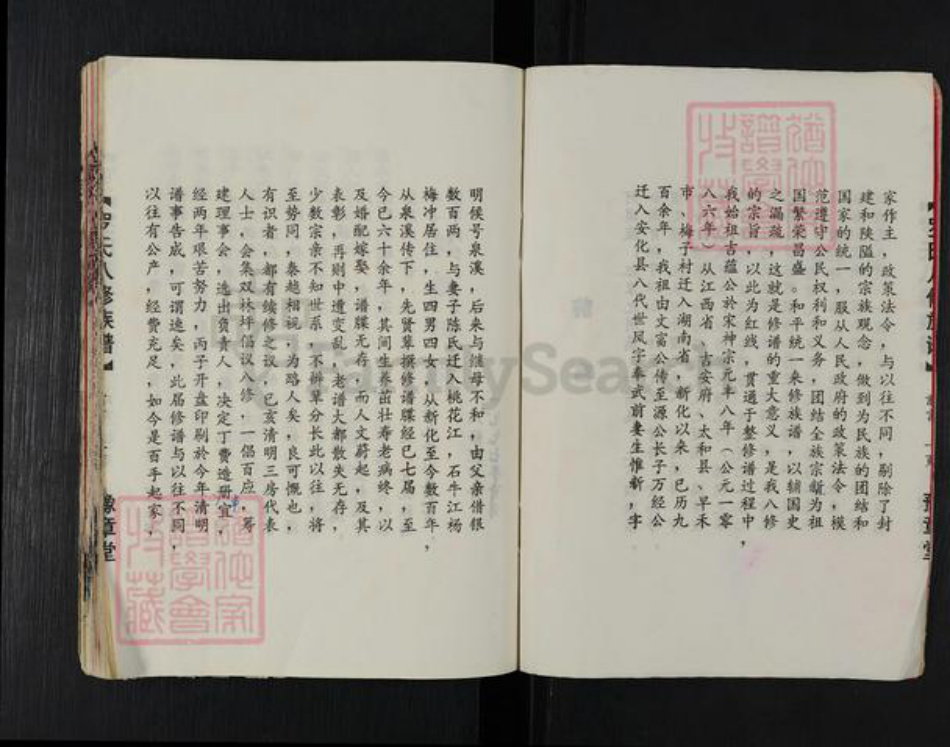 家作主，政策法令，与以往不同，剔除了封
建和陕隘的宗族观念，做到为民族的团结和
国家的统一，服从人民政府的政策法令，模
范遵守公民权利和义务，团结全族宗新为祖
国繁荣昌盛。和平统一来修族谱，以辅国史
之漏疏，这就是修谱的重大意义，是我八修
的宗旨，以此为红线，贯通于整修谱过程中，
我始祖吉蕴公於宋神宗元丰八年（公元一零
八六年）从江西省、吉安府、太和县、早禾
市、梅子村迁入湖南省，新化以来，已历九
百余年，我祖由文富公传至源公长子万经公
迁入安化县八代世凤字奉武前妻生惟新，字
明候号泉溪，后来与继母不和，由父亲借银
数百两，与妻子陈氏迁入桃花江，石牛江杨
梅冲居住，生四男四女，从新化至今数百年，
从泉溪传下，先贤辈撰修谱牒经已七届，至
今已六十余年，其间生养茁壮寿老病终，以
及婚配嫁娶，谱牒无存，而人文蔚起，及其
表彰，再则中遭变乱，老谱大都散失无存，
少数宗亲不知世系，不辨辈分长此以往，将
至势同，秦越相视，为路人矣，良可慨也，
有识者，都有续修之议，已亥清明三房代表
人士，会集双林坪倡议八修，一倡百应，筹
建理事会，选出负责人，决定丁费造册宜，
经两年艰苦努力，丙子开盘印刷於今年清明
谱事告成，可谓速矣，此届修谱与以往不同，
以往有公产，经费充足，如今是百手起家，
罗氏八修族谱
豫章堂